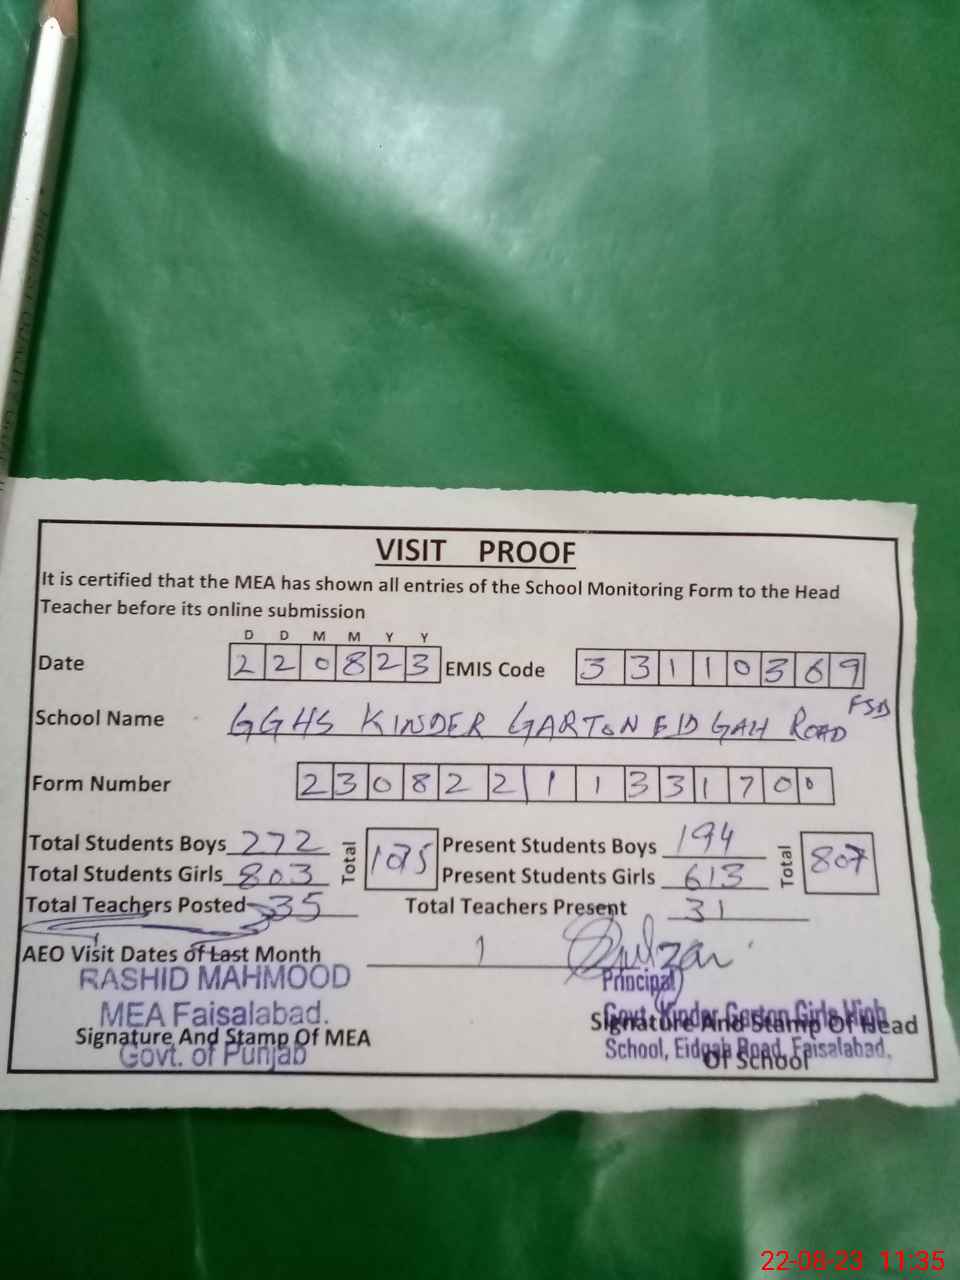 VISIT PROOF
It is certified that the MEA has shown all entries of the School Monitoring Form to the Head
Teacher before its online submission
D D M M Y Y
Date 2 2 0 8 2 3 EMIS Code 3 3 1 1 0 3 6 9
School Name GGHS KINDER GARTON EID GAH ROAD FSD
Form Number 2 3 0 8 2 2 1 1 3 3 1 7 0 0
Total Students Boys 272 Total 1075 Present Students Boys 194 Total 807
Total Students Girls 803 Present Students Girls 613
Total Teachers Posted 35 Total Teachers Present 31
AEO Visit Dates of Last Month 1
RASHID MAHMOOD Principal
MEA Faisalabad. Govt. Kinder Garton Girls High
Signature And Stamp Of MEA Signature And Stamp Of Head
Govt. of Punjab School, Eidgah Road, Faisalabad.
Of School
22-08-23 11:35